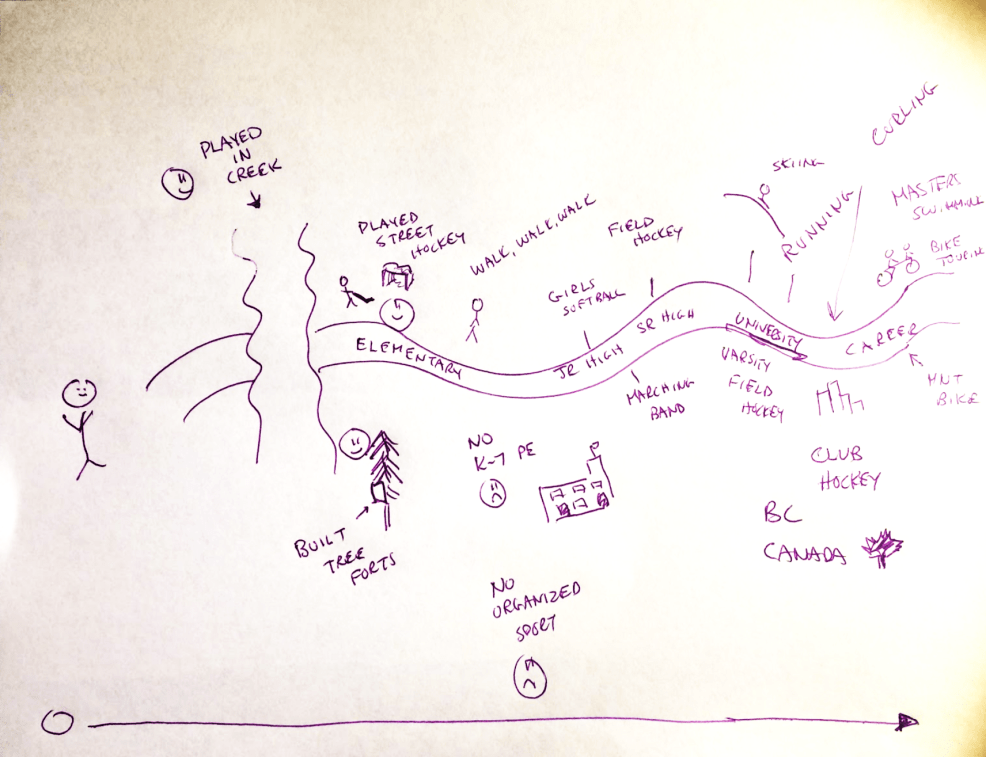 PLAYED
IN
CREEK
PLAYED
STREET
HOCKEY
WALK, WALK, WALK
FIELD
HOCKEY
SKIING
RUNNING
CURLING
MASTERS
BIKE
GIRLS
SOFTBALL
ELEMENTARY
JR HIGH
SR HIGH
UNIVERSITY
CAREER
MARCHING
BAND
VARSITY
FIELD
HOCKEY
MNT
BIKE
NO
K-7 PE
CLUB
HOCKEY
BC
CANADA
BUILT
TREE
FORTS
NO
ORGANIZED
SPORT